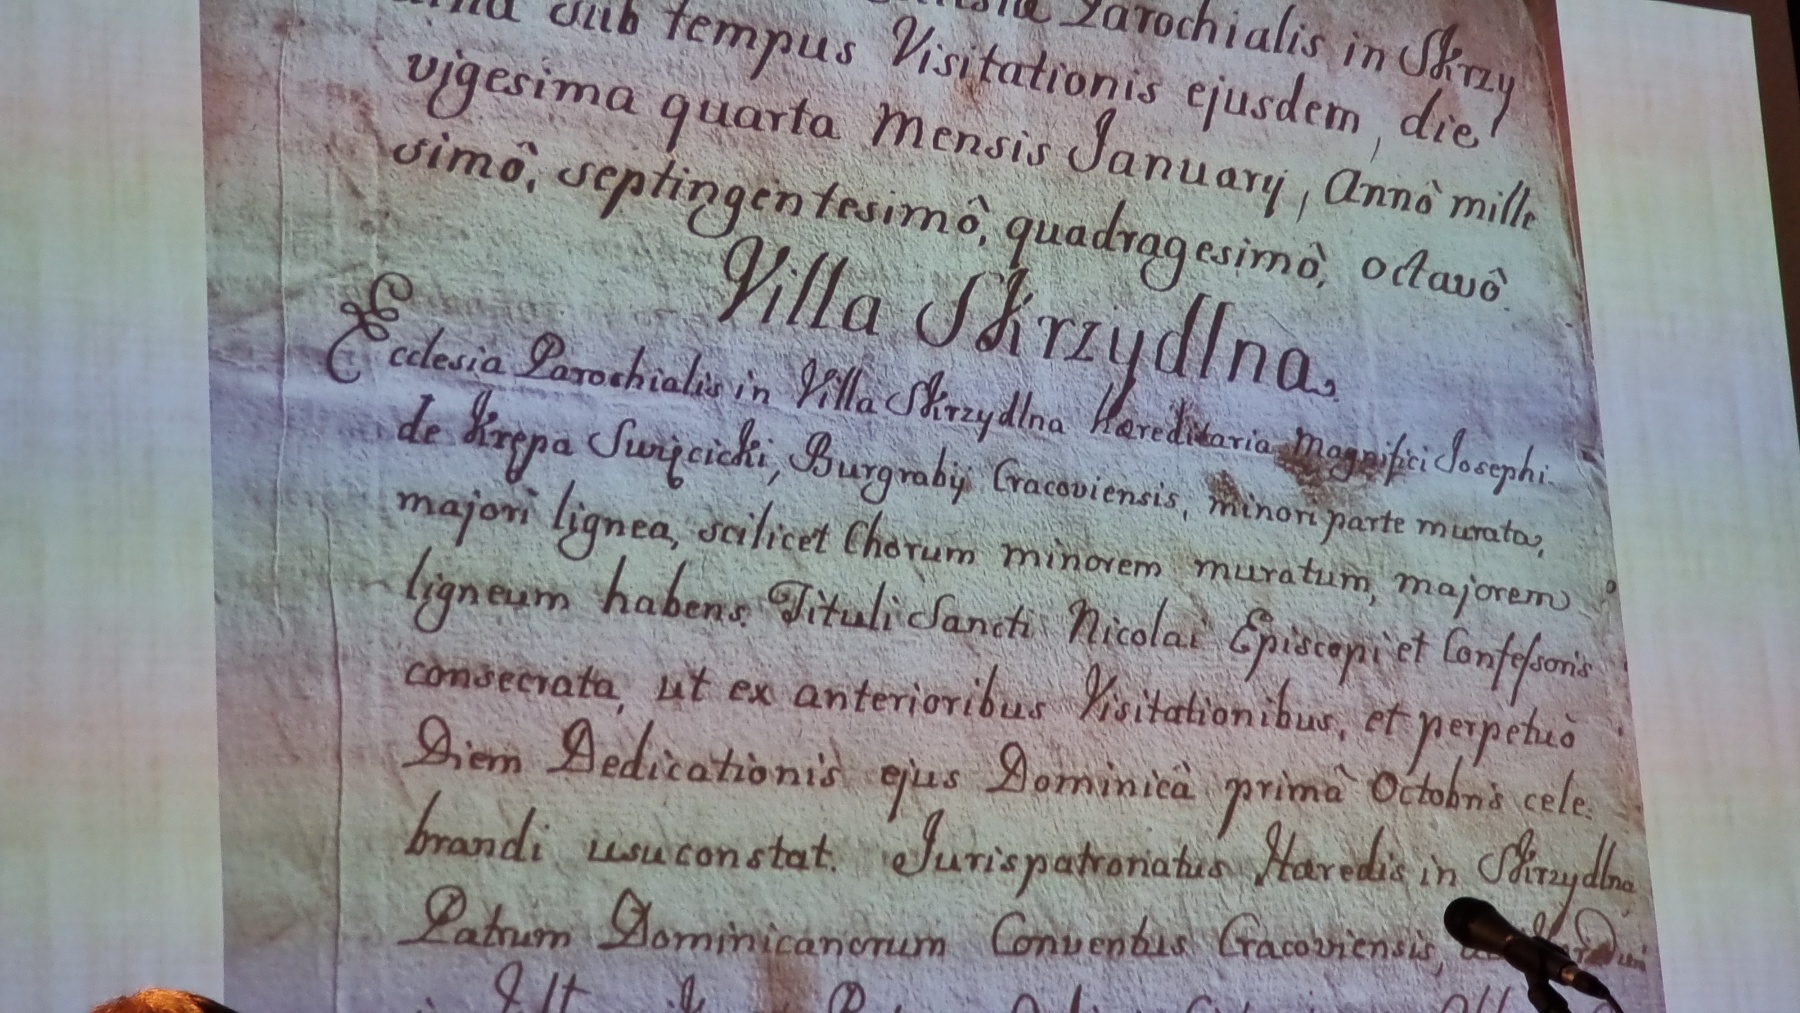 Parochialis in Skrzy
sub tempus Visitationis ejusdem, die
vigesima quarta Mensis January, Annô mille
simô, septingentesimô, quadragesimô, octavô
Villa Skrzydlna,
Ecclesia Parochialis in Villa Skrzydlna Hæreditaria Magnifici Josephi
de Krępa Swięcicki, Burgrabij Cracoviensis, minori parte murata,
majori lignea, scilicet Chorum minorem muratum, majorem
ligneum habens. Tituli Sancti Nicolai Episcopi et Confeſsoris
consecrata, ut ex anterioribus Visitationibus, et perpetuô
Diem Dedicationis ejus Dominicâ primâ Octobris cele.
brandi usu constat. Jurispatronatus Hæredis in Skrzydlna
Patrum Dominicanorum Conventus Cracoviensis,